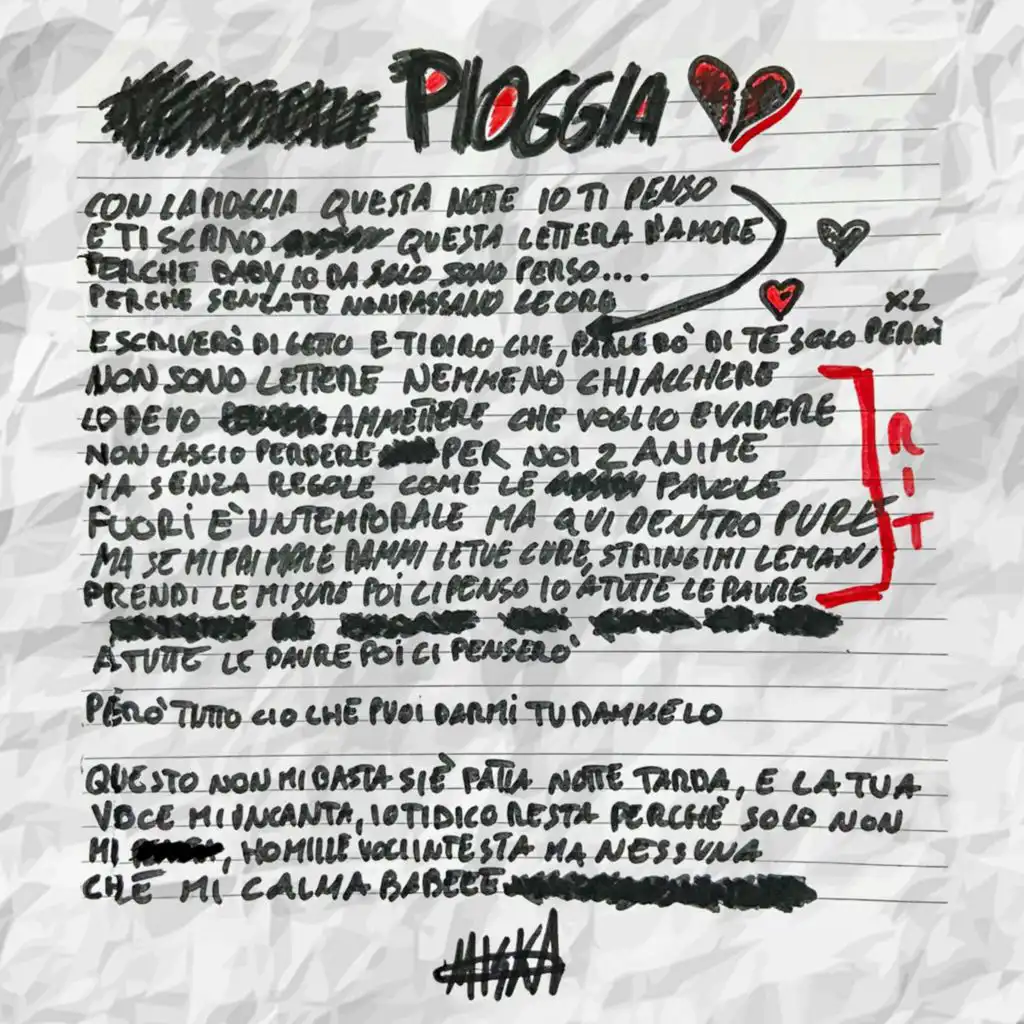 PIOGGIA
CON LA PIOGGIA QUESTA NOTTE IO TI PENSO
E TI SCRIVO QUESTA LETTERA D'AMORE
PERCHE BABY IO DA SOLO SONO PERSO....
PERCHE SENZA TE NON PASSANO LE ORE
X2
E SCRIVERÒ DI GETTO E TI DIRO CHE, PARLERÒ DI TE SOLO PERCHÈ
NON SONO LETTERE NEMMENO CHIACCHERE
LO DEVO AMMETTERE CHE VOGLIO EVADERE
NON LASCIO PERDERE PER NOI 2 ANIME
MA SENZA REGOLE COME LE FAVOLE
FUORI È UN TEMPORALE MA QUI DENTRO PURE
MA SE MI FAI MALE DAMMI LE TUE CURE, STRINGIMI LE MANI
PRENDI LE MISURE POI CI PENSO IO A TUTTE LE PAURE
RIT
A TUTTE LE PAURE POI CI PENSERÒ
PERÒ TUTTO CIO CHE PUOI DARMI TU DAMMELO
QUESTO NON MI BASTA SI È FATTA NOTTE TARDA, E LA TUA
VOCE MI INCANTA, IO TI DICO RESTA PERCHÈ SOLO NON
MI , HO MILLE VOCI IN TESTA MA NESSUNA
CHE MI CALMA BABEEE
MISKA